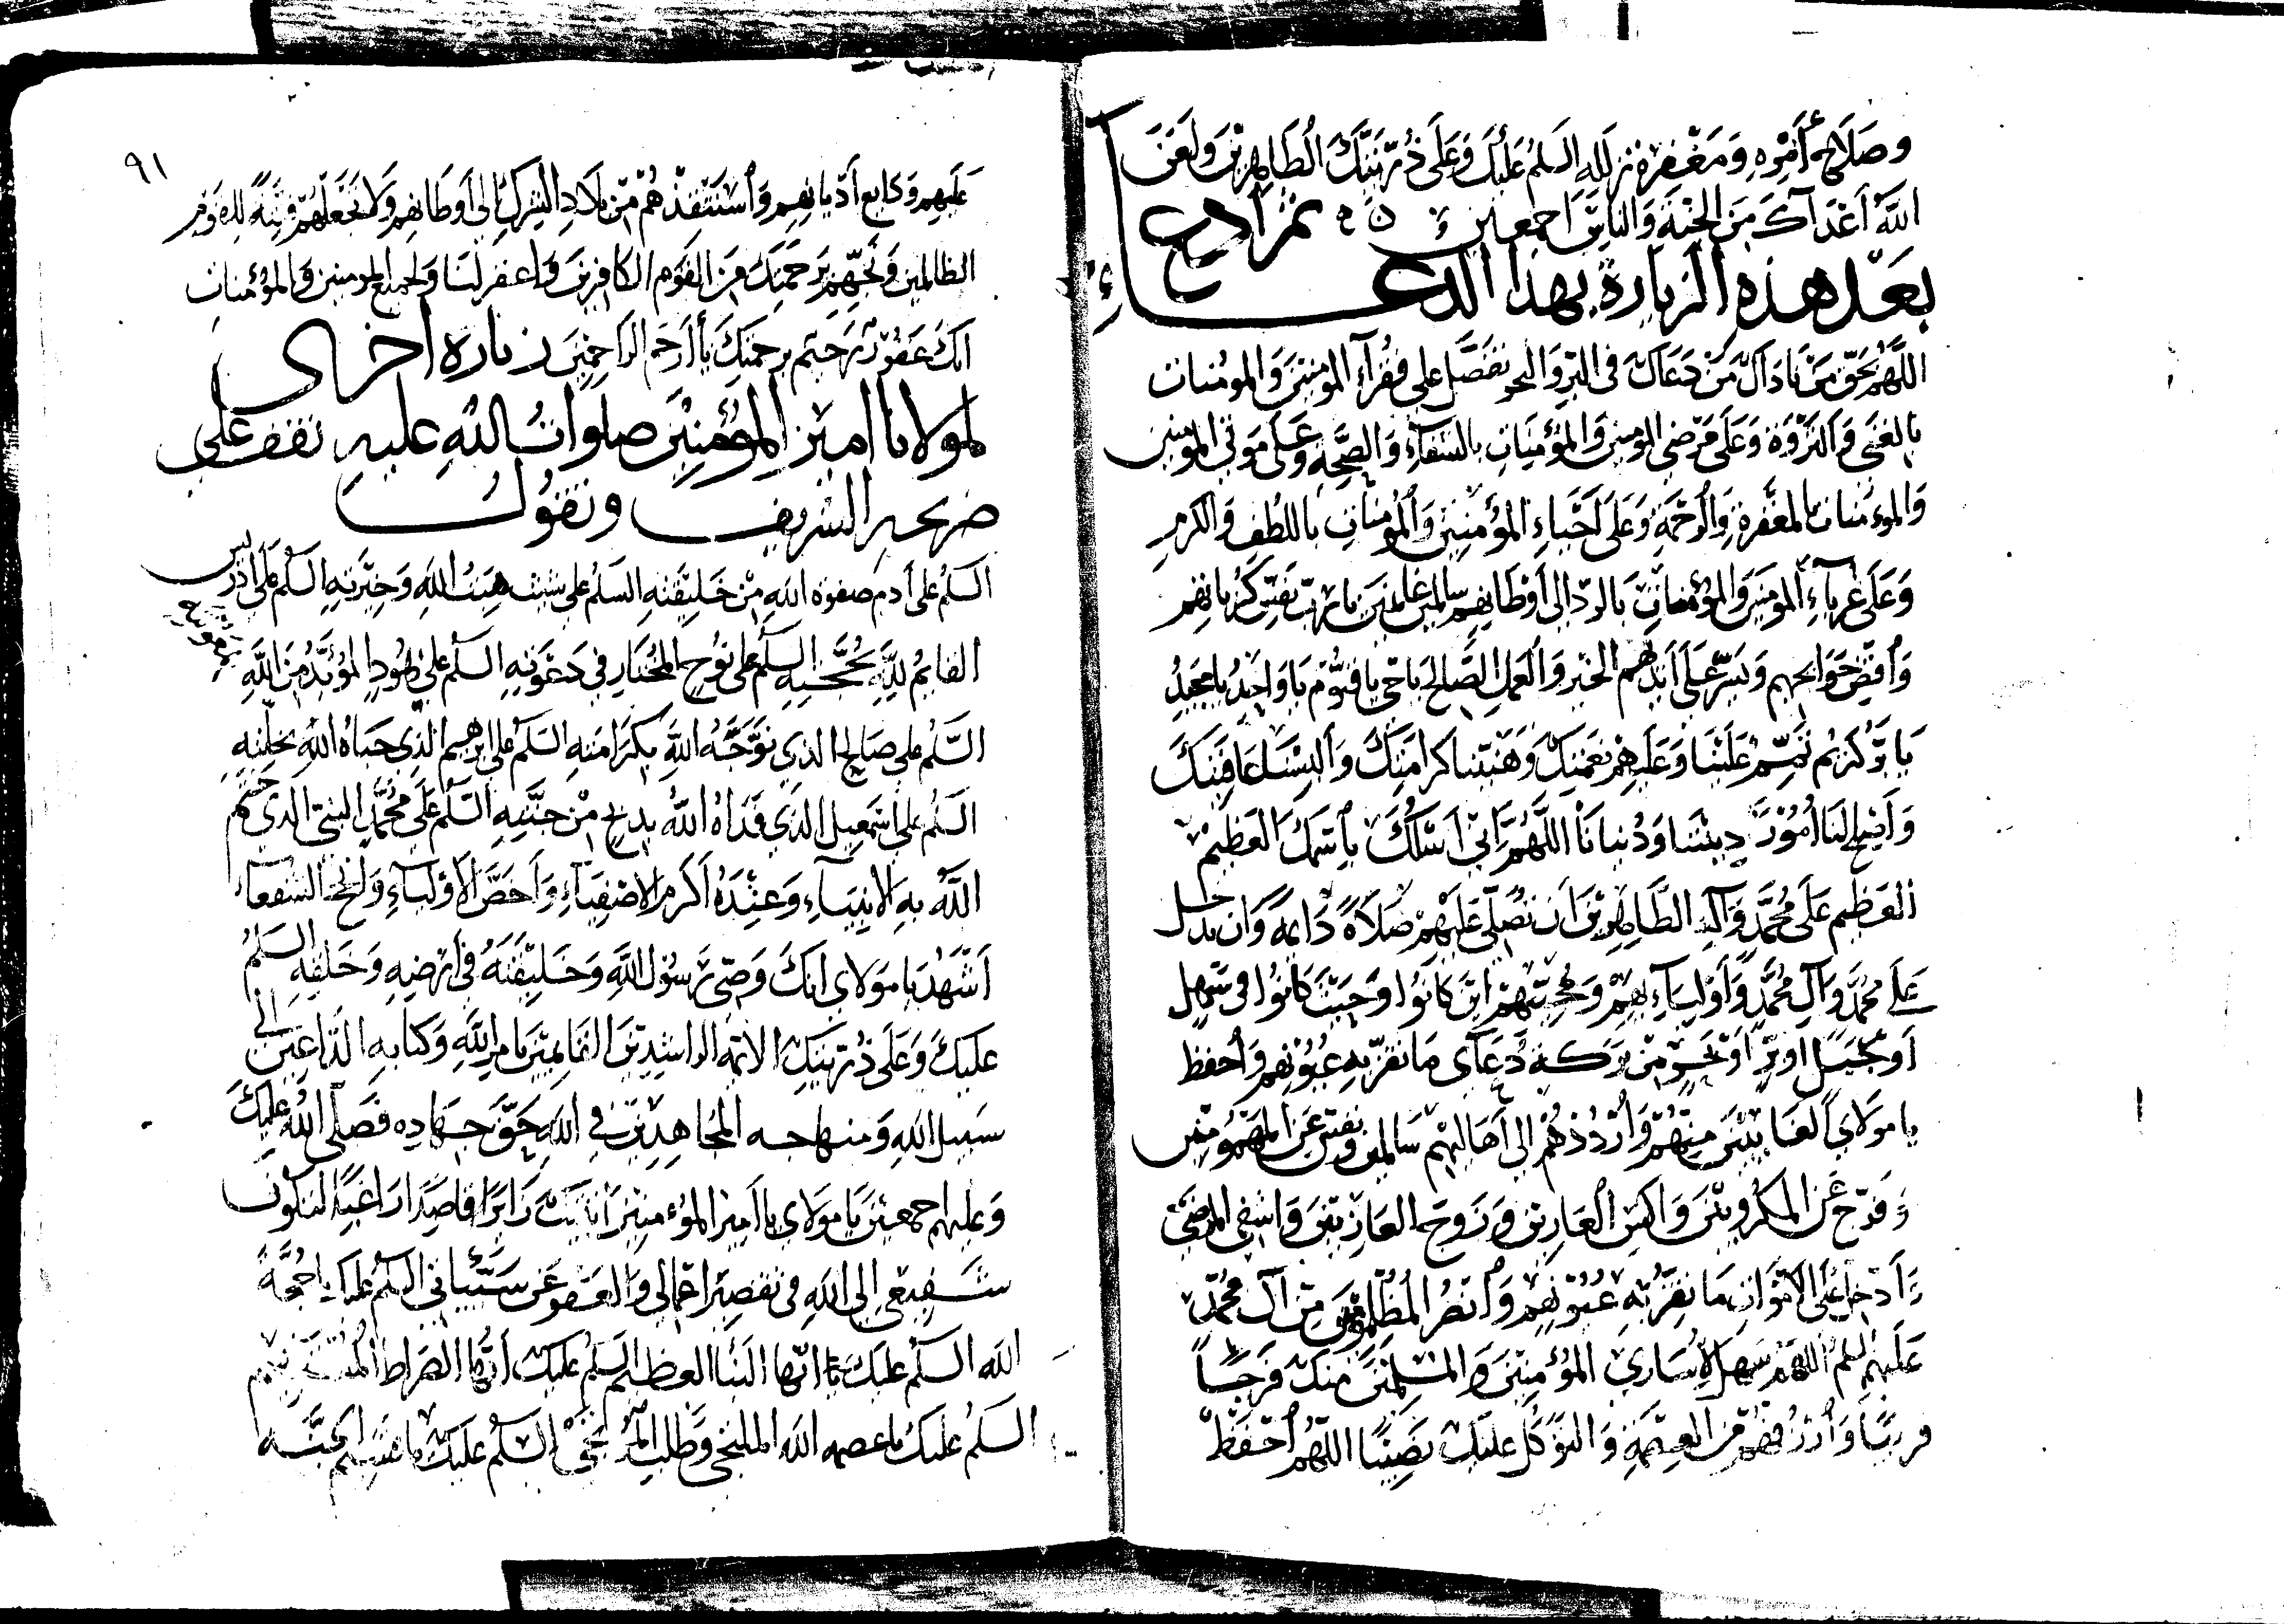 وصلاح أموره ومغفرة من الله السلم عليك وعلى ذريتك الطاهرين ولعن
الله أعداك من الجنة والناس اجمعين ثم ادع
بعد هذه الزيارة بهذا الدعاء
اللهم بحق من ناداك ومن دعاك في البر والبحر تفضل على فقرآء المومنين والمومنات
بالغنى والثروة وعلى مرضى المومنين والمؤمنات بالشفآء والصحة وعلى موتى المومنين
والموءمنات بالمغفرة والرحمة وعلى احياء المؤمنين والمؤمنات باللطف والكرم
وعلى غرباء المومنين والمؤمنات بالرد الى أوطانهم سالمين غانمين يا رب نفس كرباتهم
وأقض حوايجهم ويسر على أيديهم الخير والعمل الصالح يا حي يا قيوم يا واحد يا مجيد
يا بر كريم تمم علينا وعليهم نعمتك وهنينا كرامتك وألبسنا عافيتك
وأصلح لنا أمور ديننا ودنيانا اللهم اني اسلك بأسمك العظيم
العظيم على محمد وآله الطاهرين أن تصلي عليهم صلاة دايمة وان تدخل
على محمد وآل محمد وأوليآءهم ومحبيهم اين كانوا وحيث كانوا في سهل
او جبل او بر او بحر من بركة دعآى ما تقر به عيونهم وأحفظ
يا مولاي الغايبين منهم وأرددهم الى أهاليهم سالمين ونفس عن المهمومين
وفرج عن المكروبين واكس العارين وزوج العازبين واشفي المرضى
وأدخل على الأموات ما تقر به عيونهم وأنصر المظلومين من آل محمد
عليهم السلم اللهم سهل لأسارى المؤمنين والمسلمين منك فرجاً
قريبًا وأرزقهم من العصمة والتوكل عليك نصيبًا اللهم أحفظ
٩١
عليهم ودايع أديانهم وأستنقذهم من بلاد الشرك الى أوطانهم ولا تجعلهم فتنةً للقوم
الظالمين ونجهم برحمتك من القوم الكافرين واغفر لنا ولجميع المومنين والمؤمنات
انك غفور رحيم برحمتك يا أرحم الراحمين زيارة اخرى
لمولانا امير المؤمنين صلوات الله عليه تقف على
ضريحه الشريف وتقول
السلم على أدم صفوة الله من خليقته السلم على شيث هبت الله وخيرته السلم على ادريس
القايم لله بحجته السلم على نوح المختار في دعوته السلم على هود المؤيد من الله
السلم على صالح الذي توجه الله بكرامته السلم على ابرهيم الذي حباه الله بخلته
السلم على اسمعيل الذي فداه الله بذبح من جنته السلم على محمد النبي الذي ختم
الله به الانبيآء وعنده أكرم الاصفيآء وأخص الأوليآء وانجح الشفعاء
أشهد يا مولاي أنك وصي رسول الله وخليفته في أرضه وخلقه السلم
عليك وعلى ذريتك الائمة الراشدين القايمين بامر الله وكتابه الداعين الى
سبيل الله ومنهاجه المجاهدين في الله حق جهاده فصلى الله عليك
وعليهم اجمعين يا مولاي يا امير المؤمنين أتيتك زايرا قاصدا راغبًا لتكون
شفيعي الى الله في تقصير اعمالي والعفو عن سيئاتي السلم عليك يا حجة
الله السلم عليك يا ايها النبأ العظيم السلم عليك ايها الصراط المستقيم
السلم عليك يا عصمة الله الملتجى السلم عليك يا قسيم الجنة